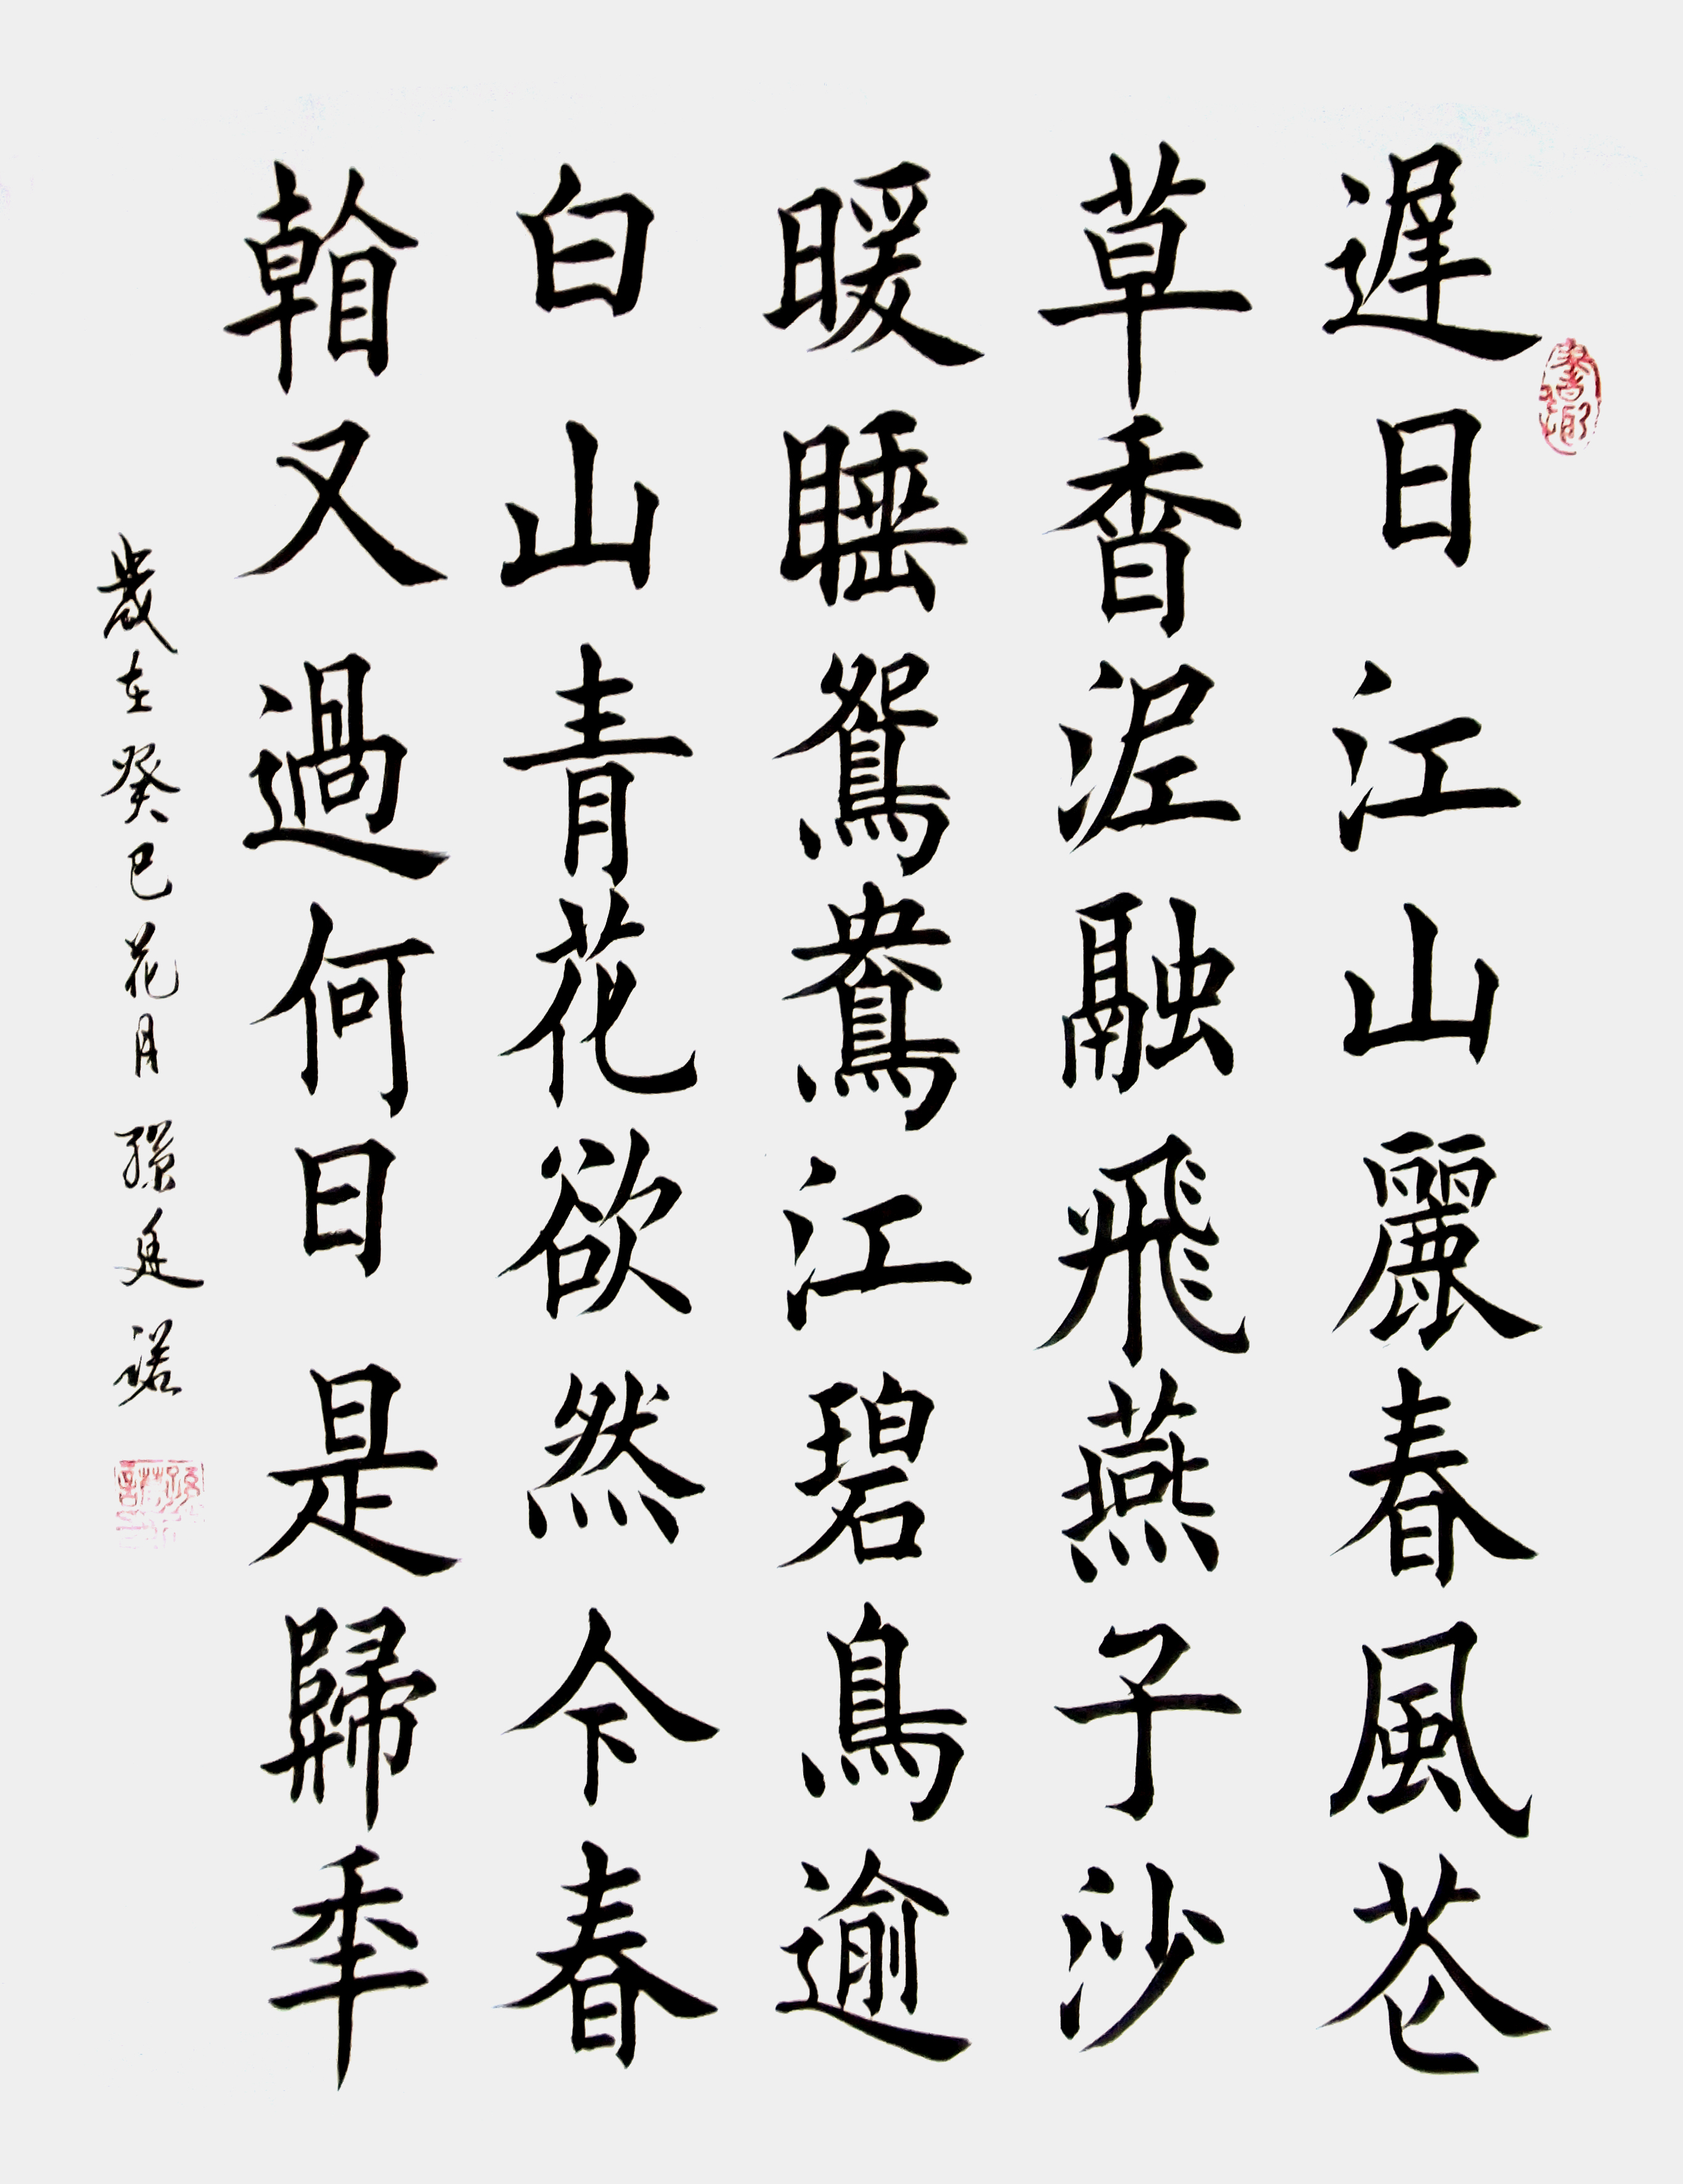 遅日江山麗春風苍
草香泥融飛燕子沙
暖睡鴛鴦江碧鳥逾
白山青花欲然今春
看又過何日是歸年
歲在癸巳花月 孫廷諾